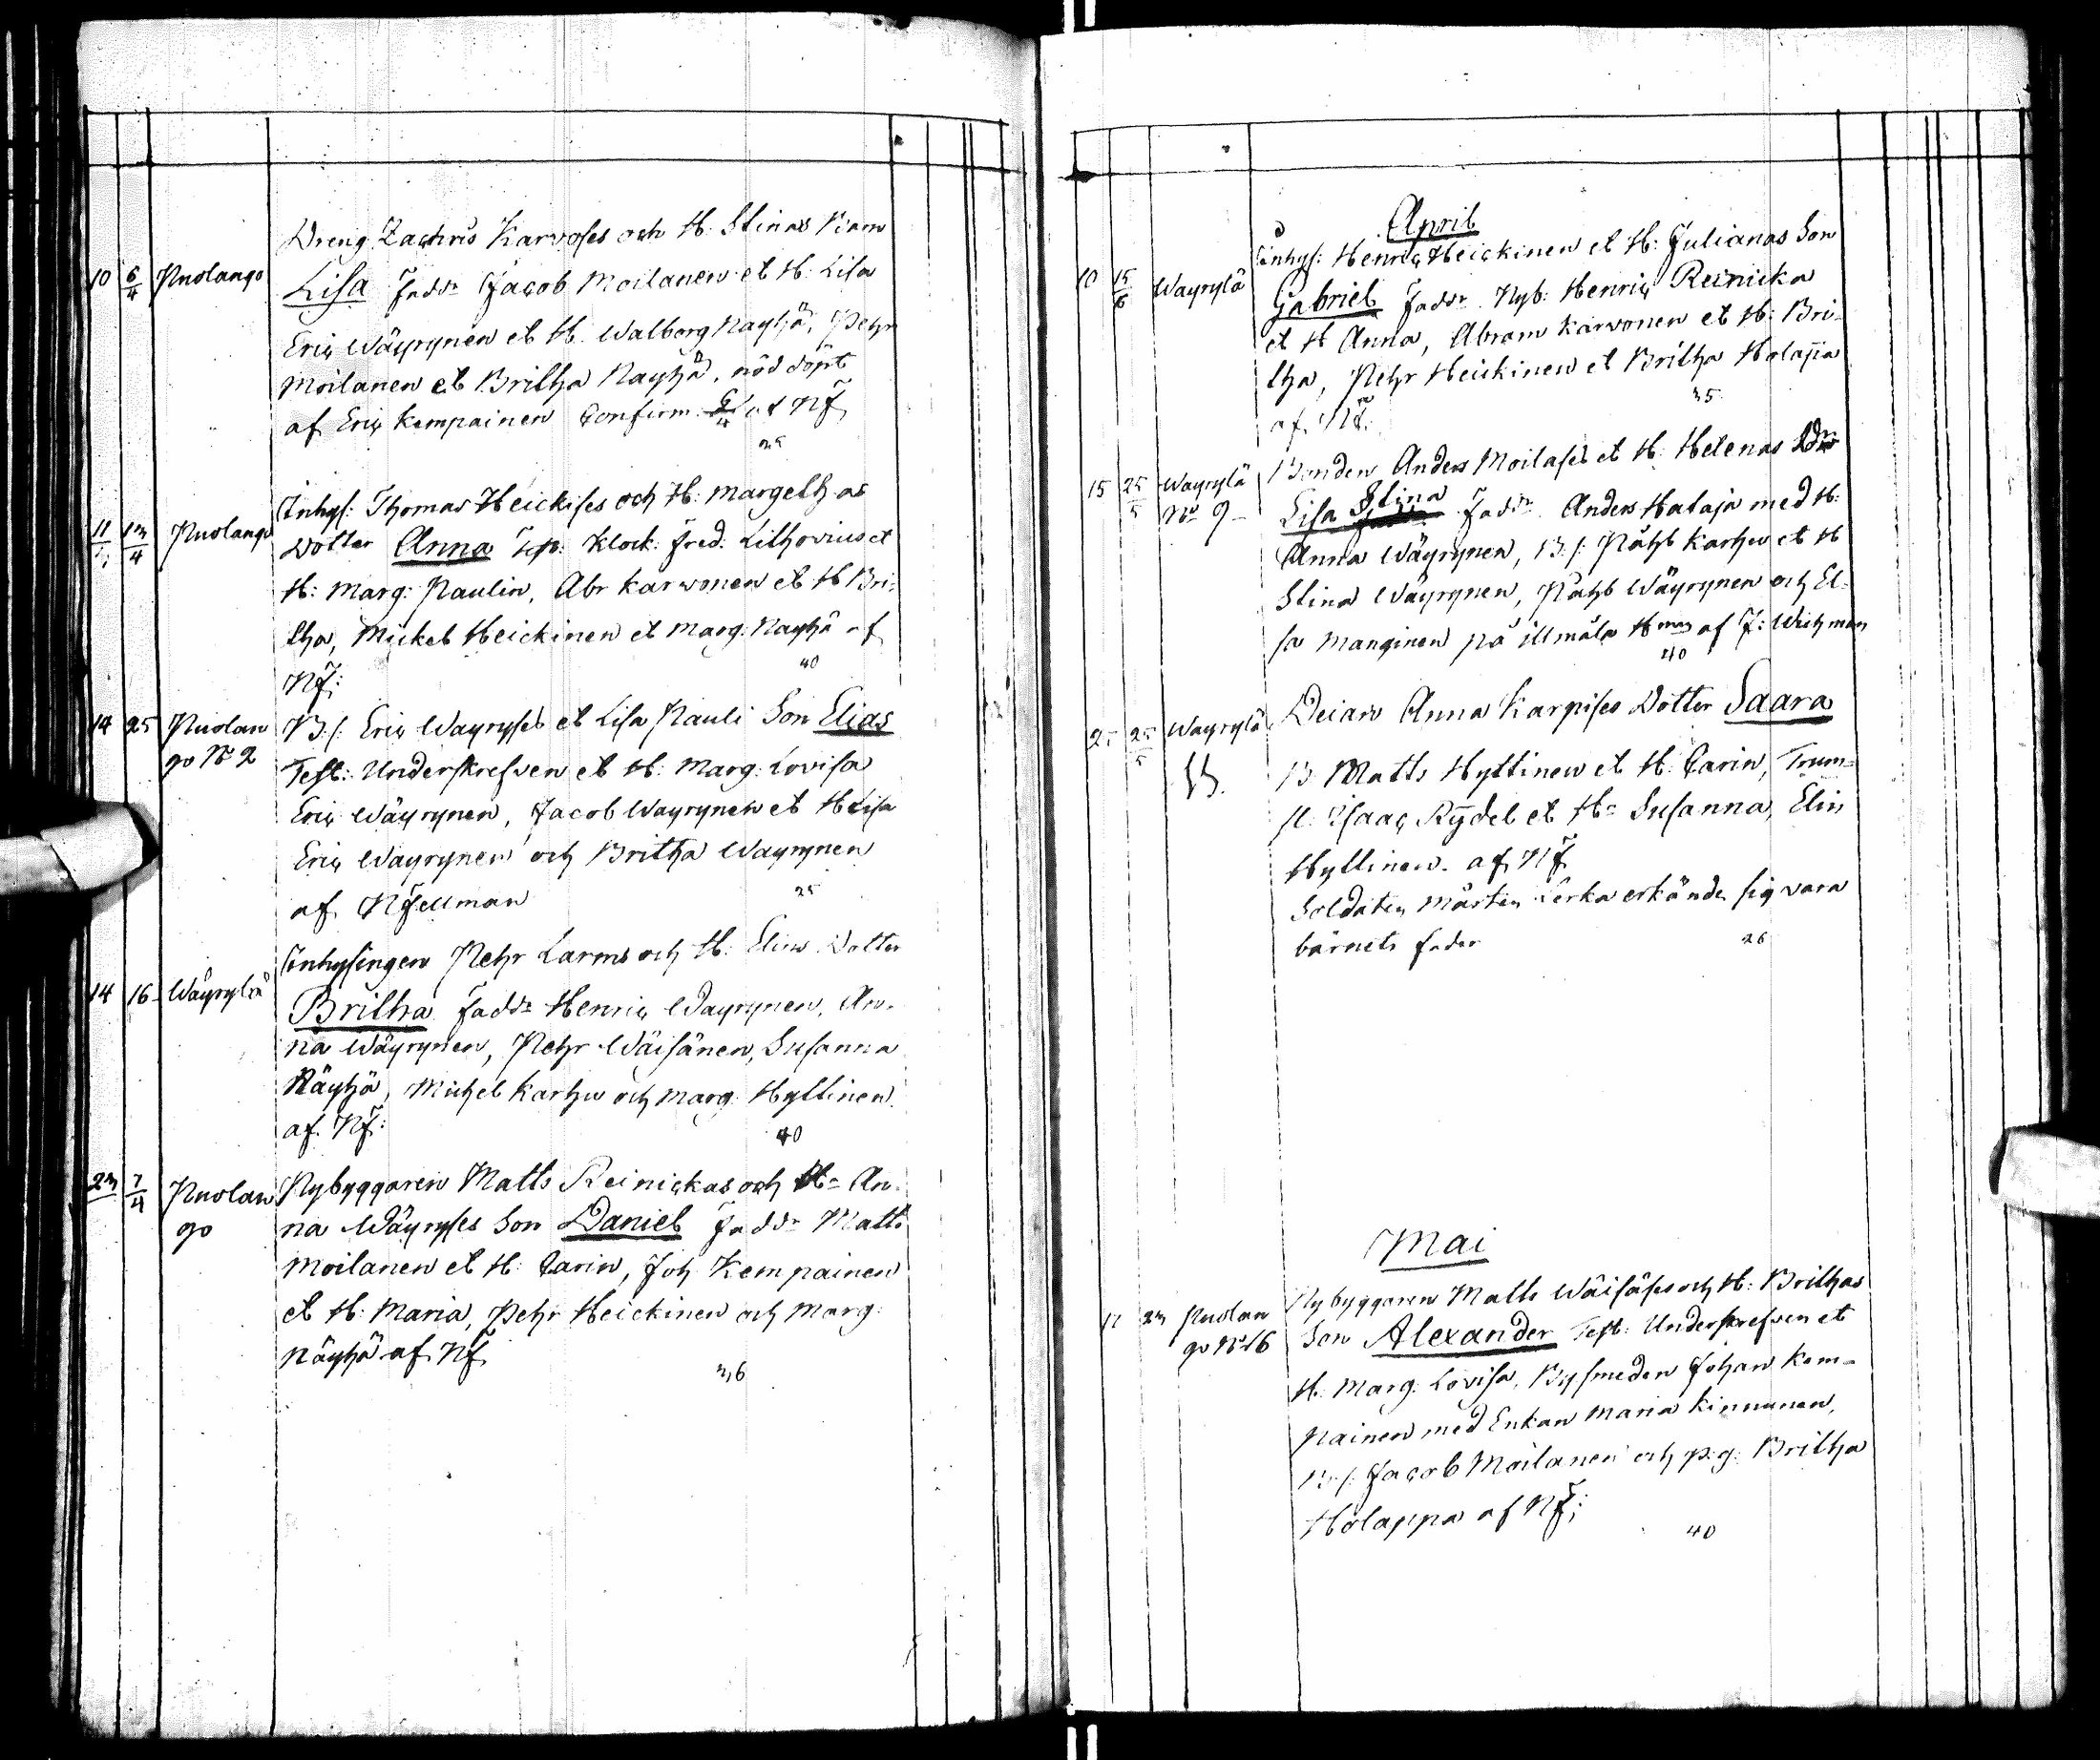 Dreng Zachris Karvoses och H: Stinas Barn
10 6/4 Puolango Lisa Faddr Jacob Moilanen et H: Lisa
Eriç Wäyrynen et H. Walborg Nayhä, Pehr
Moilanen et Britha Nayhä, nöd döpt
af Eriç Kempainen Confirm. 6/4 af NF
25
Inhys: Thomas Heickises och H: Margethas
11 13/4 Puolango Dotter Anna Test: Klock: Fred: Lithovius et
H: Marg: Paulin, Abr Karvonen et H Bri-
tha, Mickel Heickinen et Marg: Nayhä af
NF: 40
14 25 Puolan B.s. Eriç Wayryses et Lisa Pauli Son Elias
go No 2 Test: Underskrefven et H: Marg: Lovisa
Eriç Wäyrynen, Jacob Wayrynen et H Lisa
Eriç Wäyrynen och Britha Wayrynen
af NFellman 25
Inhysingen Pehr Larms och H: Elins Dotter
14 16 Wäyrylä Britha Faddr Henriç Wayrynen, An-
na Wäyrynen, Pehr Wäisänen, Susanna
Näyhä, Michel Karhu och Marg: Hyttinen
af NF: 40
23 7/4 Puolan Nybyggaren Matts Reinickas och H: An-
go na Wäyryses Son Daniel Faddr Matts
Moilanen et H: Carin, Joh Kempainen
et H: Maria, Pehr Heickinen och Marg:
Näyhä af NF
36
April
Inhys: Henriç Heickinen et H: Julianas Son
10 15/6 Wayrylä Gabriel Faddr Nyb: Henriç Reinicka
et H Anna, Abram Karvonen et H: Bri-
tha, Pehr Heickinen et Britha Holappa
af NF. 35
15 25/5 Wayrylä Bonden Anders Moilases et H: Helenas Dr
No 9 Lisa Stina Faddr Anders Hataja med H:
Anna Wäyrynen, B.s. Påhl Karhu et H
Stina Wäyrynen, Påhl Wäyrynen och El-
sa Manginen på illmåla Hman af J: Wichman
40
25 25/5 Wayrylä Deian Anna Karpises Dotter Saara
B Matts Hyttinen et H: Carin, Trum-
sl: Isaaç Rydel et H: Susanna, Elin
Hyttinen. af NF
Soldaten Mårten Lerka erkände sig vara
barnets fader 26
Mai
Nybyggaren Matts Wäisäses och H: Brithas
11 23 Puolan Son Alexander Test: Underskrefven et
go No 16 H: Marg: Lovisa, Bysmeden Johan Kem-
painen med Enkan Maria Kinnunen,
B.s. Jacob Moilanen och p:g: Britha
Holappa af NF;
40